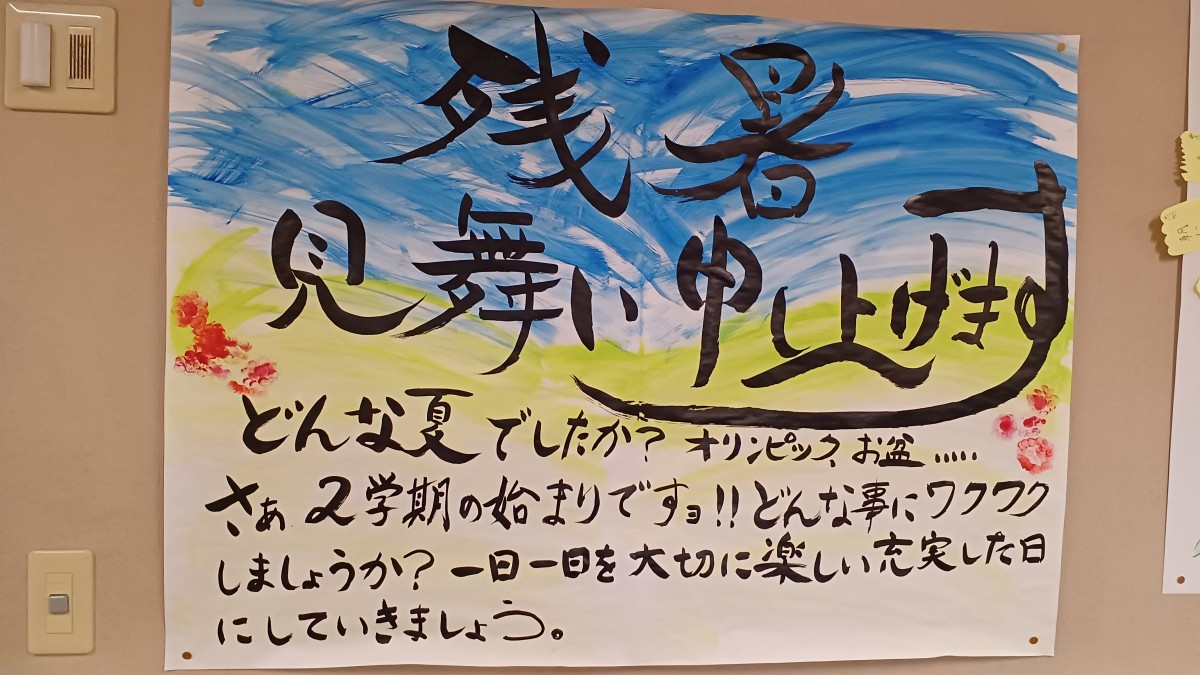 残暑
見舞い申し上げます
どんな夏でしたか? オリンピック、お盆.....
さぁ2学期の始まりですョ!!どんな事にワクワク
しましょうか?一日一日を大切に楽しい充実した日
にしていきましょう。